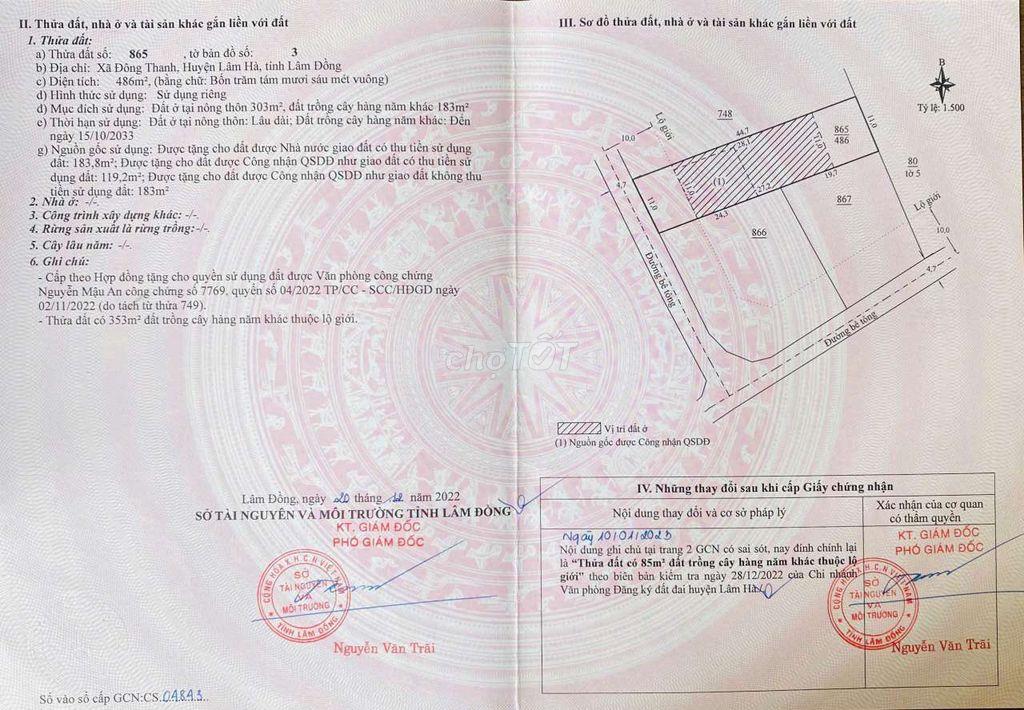 II. Thửa đất, nhà ở và tài sản khác gắn liền với đất
1. Thửa đất:
a) Thửa đất số: 865 , tờ bản đồ số: 3
b) Địa chỉ: Xã Đông Thanh, Huyện Lâm Hà, tỉnh Lâm Đồng
c) Diện tích: 486m², (bằng chữ: Bốn trăm tám mươi sáu mét vuông)
d) Hình thức sử dụng: Sử dụng riêng
đ) Mục đích sử dụng: Đất ở tại nông thôn 303m², đất trồng cây hàng năm khác 183m²
e) Thời hạn sử dụng: Đất ở tại nông thôn: Lâu dài; Đất trồng cây hàng năm khác: Đến
ngày 15/10/2033
g) Nguồn gốc sử dụng: Được tặng cho đất được Nhà nước giao đất có thu tiền sử dụng
đất: 183,8m²; Được tặng cho đất được Công nhận QSDĐ như giao đất có thu tiền sử
dụng đất: 119,2m²; Được tặng cho đất được Công nhận QSDĐ như giao đất không thu
tiền sử dụng đất: 183m²
2. Nhà ở: -/-
3. Công trình xây dựng khác: -/-.
4. Rừng sản xuất là rừng trồng:-/-.
5. Cây lâu năm: -/-.
6. Ghi chú:
- Cấp theo Hợp đồng tặng cho quyền sử dụng đất được Văn phòng công chứng
Nguyễn Mậu An công chứng số 7769, quyển số 04/2022 TP/CC - SCC/HĐGD ngày
02/11/2022 (do tách từ thửa 749).
- Thửa đất có 353m² đất trồng cây hàng năm khác thuộc lộ giới.
Lâm Đồng, ngày 20 tháng 12 năm 2022
SỞ TÀI NGUYÊN VÀ MÔI TRƯỜNG TỈNH LÂM ĐỒNG
KT. GIÁM ĐỐC
PHÓ GIÁM ĐỐC
CỘNG HÒA X.H.C.N VIỆT NAM
SỞ
TÀI NGUYÊN
VÀ
MÔI TRƯỜNG
TỈNH LÂM ĐỒNG
Nguyễn Văn Trãi
Số vào sổ cấp GCN:CS.04843..
III. Sơ đồ thửa đất, nhà ở và tài sản khác gắn liền với đất
B
Tỷ lệ: 1:500
748
Lộ giới
10,0
44,7
28,1
11,0
11,0
865
486
80
tờ 5
4,7
11,0
11,0
(1)
27,2
19,7
24,3
867
866
Lộ giới
10,0
4,7
Đường bê tông
Đường bê tông
chợTỐT
Vị trí đất ở
(1) Nguồn gốc được Công nhận QSDĐ
IV. Những thay đổi sau khi cấp Giấy chứng nhận
Nội dung thay đổi và cơ sở pháp lý
Xác nhận của cơ quan
có thẩm quyền
Ngày 10/01/2023
Nội dung ghi chú tại trang 2 GCN có sai sót, nay đính chính lại
là “Thửa đất có 85m² đất trồng cây hàng năm khác thuộc lộ
giới” theo biên bản kiểm tra ngày 28/12/2022 của Chi nhánh
Văn phòng Đăng ký đất đai huyện Lâm Hà.
KT. GIÁM ĐỐC
PHÓ GIÁM ĐỐC
CỘNG HÒA X.H.C.N VIỆT NAM
SỞ
TÀI NGUYÊN
VÀ
MÔI TRƯỜNG
TỈNH LÂM ĐỒNG
Nguyễn Văn Trãi